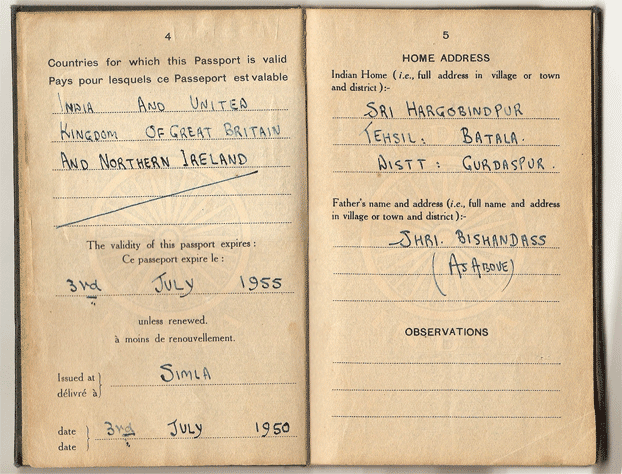 4
Countries for which this Passport is valid
Pays pour lesquels ce Passeport est valable
INDIA AND UNITED
KINGDOM OF GREAT BRITAIN
AND NORTHERN IRELAND
The validity of this passport expires :
Ce passeport expire le :
3rd JULY 1955
unless renewed.
à moins de renouvellement.
Issued at
délivré à
SIMLA
date
date
3rd JULY 1950
5
HOME ADDRESS
Indian Home (i.e., full address in village or town
and district) :-
SRI HARGOBINDPUR
TEHSIL : BATALA.
DISTT : GURDASPUR.
Father's name and address (i.e., full name and address
in village or town and district) :-
SHRI. BISHANDASS
(AS ABOVE)
OBSERVATIONS